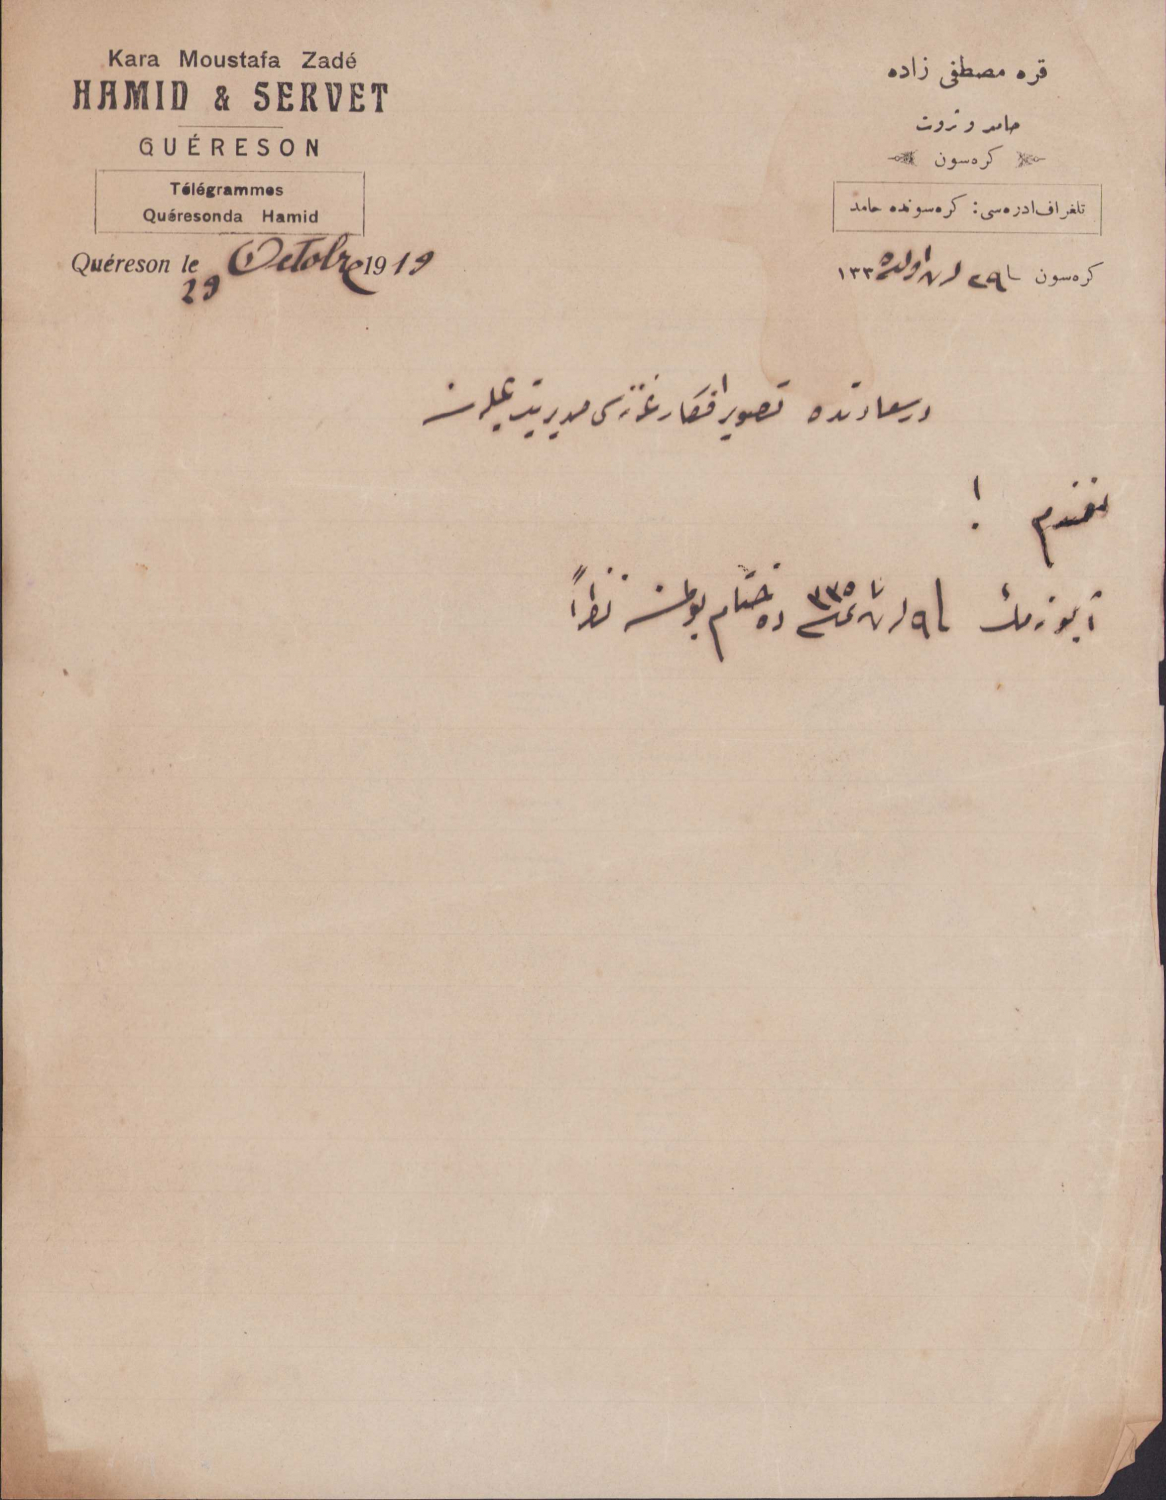 Kara Moustafa Zadé
HAMID & SERVET
QUÉRESON
Télégrammes
Quéresonda Hamid
Quéreson le 29 Octobre 1919
قره مصطفى زاده
حامد و ثروت
كره‌سون
تلغراف ادره‌سى: كره‌سونده حامد
كره‌سون ٢٩ اول ١٣٣٥
درسعادتده تصوير افكار غزته‌سى مديريت عليه‌سنه
افندم !
آبونه‌مك ٣٣٥ ده ختام بولمسنه نظراً